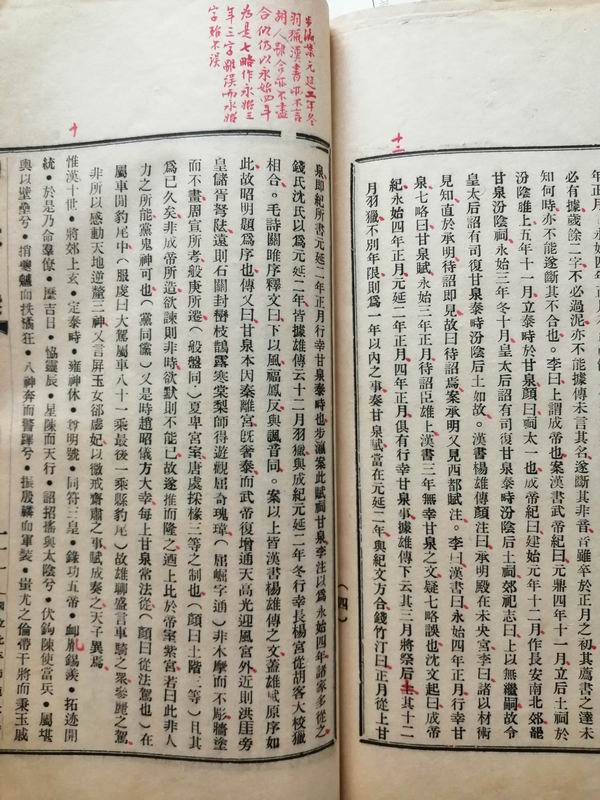 必有據歲餘二字不必過泥亦不能據傳未言其名遂斷其非普音雖卒於正月之初其薦書之達未
知何時亦不能遂斷其不合也。李曰上謂成帝也案漢書武帝紀曰元鼎四年十一月立后土祠於
汾陰脽上五年十一月立泰畤於甘泉顏曰祠太一也成帝紀曰建始元年十二月作長安南北郊罷
甘泉汾陰祠永始三年冬十月皇太后詔有司復甘泉泰畤汾陰后土祠郊祀志曰上以無繼嗣故令
皇太后詔有司復甘泉泰畤汾陰后土如故。漢書楊雄傳顏注曰承明殿在未央宮李曰諸以材術
見知直於承明待詔即見故曰待詔焉案承明又見西都賦注。李曰漢書曰永始四年正月行幸甘
泉七略曰甘泉賦永始三年正月待詔臣雄上漢書三年無幸甘泉之文疑七略誤也沈文起曰成帝
紀永始四年正月元延二年正月四年正月俱有行幸甘泉事據雄傳下云其三月將祭后土其十二
月羽獵不別年限則為一年以內之事奏甘泉賦當在元延二年與紀文方合錢竹汀曰正月從上甘
(四)
十二
步瀛案元延二年冬
羽獵漢書亦不言
胡人雖合亦不盡
合似仍以永始四年
為是七略作永始三
年三字雖誤而永始
字殆不誤
十
泉即紀所書元延二年正月行幸甘泉泰畤也步瀛案此賦祠甘泉李注以為永始四年諸家多從之
錢氏沈氏以為元延二年皆據雄傳云十二月羽獵與成紀元延二年冬行幸長楊宮從胡客大校獵
相合。毛詩關雎序釋文曰下以風福鳳反與諷音同。案以上皆漢書楊雄傳之文蓋雄賦原序如
此故昭明題為序也傳又曰甘泉本因秦離宮既奢泰而武帝復增通天高光迎風宮外近則洪厓旁
皇儲胥弩阹遠則石關封巒枝鵲露寒棠梨師得遊觀屈奇瑰瑋(屈崛字通)非木摩而不彫牆塗
而不畫周宣所考般庚所遷(般盤同)夏卑宮室唐虞採椽三等之制也(顏曰土階三等)且其
為已久矣非成帝所造欲諫則非時欲默則不能已故遂推而隆之迺上比於帝室紫宮若曰此非人
力之所能黨鬼神可也(黨同儻)又是時趙昭儀方大幸每上甘泉常法從(顏曰從法駕也)在
屬車閒豹尾中(服虔曰大駕屬車八十一乘最後一乘縣豹尾)故雄聊盛言車騎之眾參麗之駕
非所以感動天地逆釐三神又言屏玉女卻虙妃以微戒齊肅之事賦成奏之天子異焉
惟漢十世。將郊上玄。定泰畤。雍神休。尊明號。同符三皇。錄功五帝。卹胤錫羨。拓迹開
統。於是乃命羣僚。歷吉日。協靈辰。星陳而天行。詔招搖與太陰兮。伏鉤陳使當兵。屬堪
輿以壁壘兮。捎夔魖而抶獝狂。八神奔而警蹕兮。振殷轔而軍裝。蚩尤之倫帶干將而秉玉戚